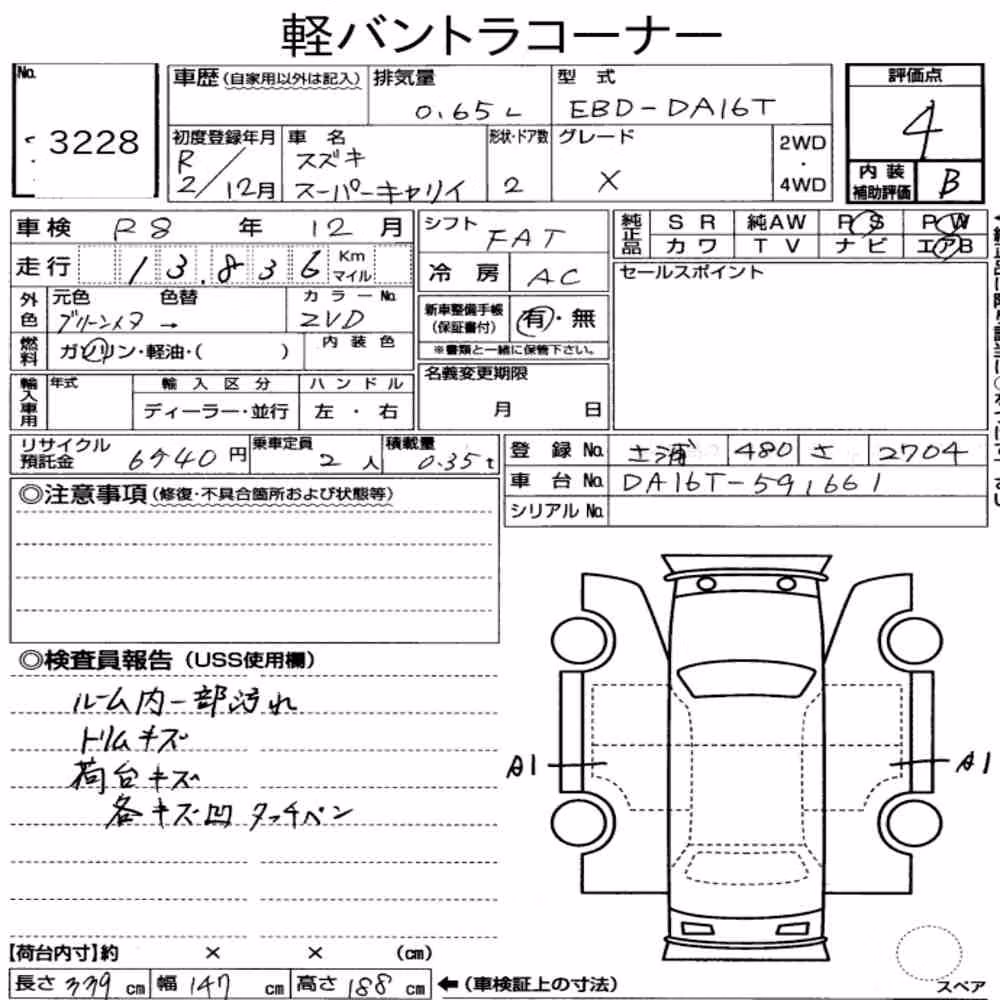 軽バントラコーナー
No.
3228
車歴 (自家用以外は記入)
排気量
0.65L
型式
EBD-DA16T
評価点
4
初度登録年月
R2/12月
車名
スズキ
スーパーキャリイ
形状・ドア数
2
グレード
X
2WD
・
4WD
内装
補助評価
B
車検 R8年 12月
シフト
FAT
純正品
SR 純AW PS PW
カワ TV ナビ エアB
走行 13.836 Km
マイル
冷房 AC
セールスポイント
外色
元色 色替
ブリーンメタ →
カラーNo.
ZVD
新車整備手帳
(保証書付)
有・無
※書類と一緒に保管下さい。
燃料
ガソリン・軽油・( )
内装色
名義変更期限
月 日
輸入車用
年式
輸入区分
ディーラー・並行
ハンドル
左・右
リサイクル
預託金
6940円
乗車定員
2人
積載量
0.35t
登録No. 480 さ 2704
車台No. DA16T-591661
シリアルNo.
◎注意事項(修復・不具合箇所および状態等)
◎検査員報告(USS使用欄)
ルーム内一部汚れ
トリムキズ
荷台キズ
各キズ凹 タッチペン
A1
A1
【荷台内寸】約 × × (cm)
長さ 339cm 幅 147cm 高さ 188cm ←(車検証上の寸法)
スペア